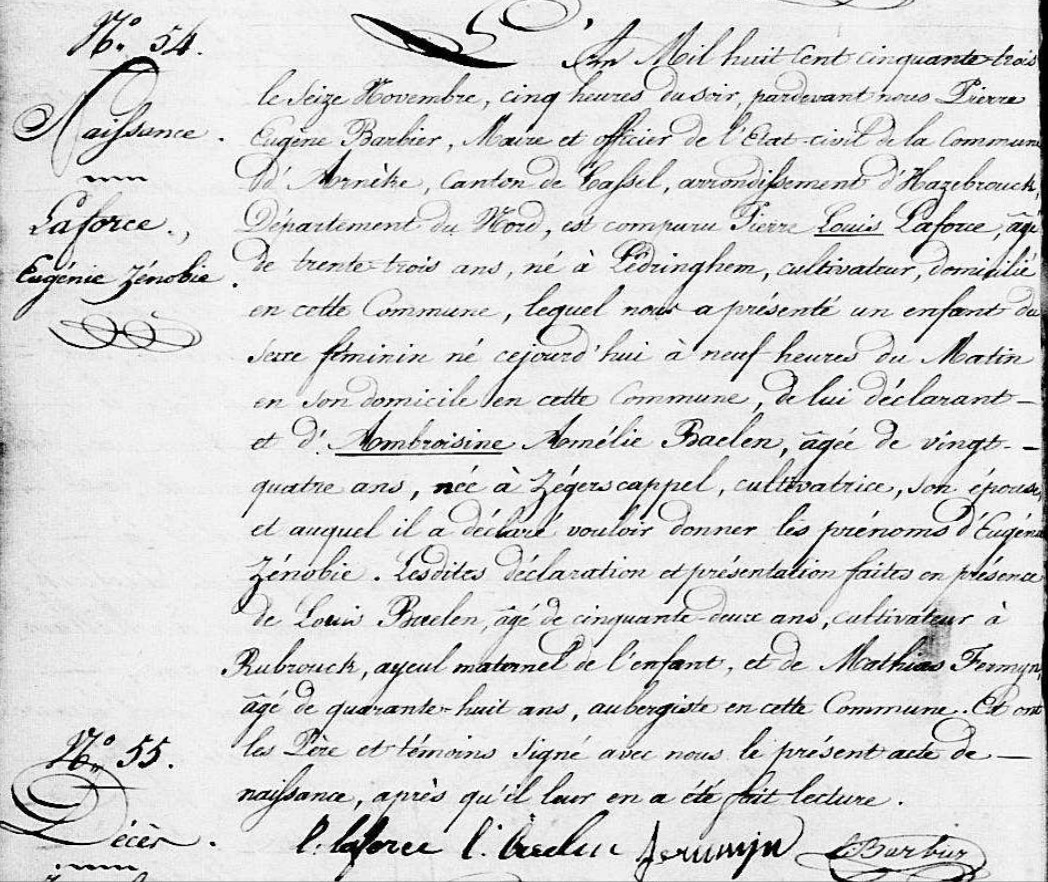 N.° 54.
Naissance.
Laforce.,
Eugénie Zénobie.
L'an Mil huit Cent cinquante-trois
le Seize Novembre, cinq heures du soir, pardevant nous Pierre
Eugène Barbier, Maire et officier de l'Etat-civil de la Commune
d'Arnèke, Canton de Cassel, arrondissement d'Hazebrouck,
Département du Nord, est comparu Pierre Louis Laforce, âgé
de trente-trois ans, né à Lédringhem, cultivateur, domicilié
en cette Commune, lequel nous a présenté un enfant du
sexe féminin né cejourd'hui à neuf heures du Matin
en son domicile en cette Commune, de lui déclarant -
et d'Ambroisine Amélie Baelen, âgée de vingt-
quatre ans, née à Zégerscappel, cultivatrice, son épouse,
et auquel il a déclaré vouloir donner les prénoms d'Eugénie
Zénobie. Lesdites déclaration et présentation faites en présence
de Louis Baelen, âgé de cinquante-deux ans, cultivateur à
Rubrouck, ayeul maternel de l'enfant, et de Mathias Fermyn,
âgé de quarante-huit ans, aubergiste en cette Commune. Et ont
les Père et témoins signé avec nous le présent acte de -
naissance, après qu'il leur en a été fait lecture.
l. laforce l. Baelen fermijn EBarbier
N.° 55.
Décès.